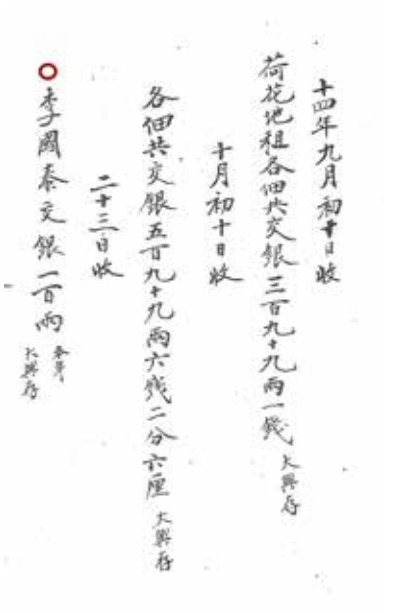 十四年九月初十日收
荷花地租各佃共交銀三百九十九兩一錢 大興存
十月初十日收
各佃共交銀五百九十九兩六錢二分六厘 大興存
二十三日收
李國泰交銀一百兩 本年 大興存